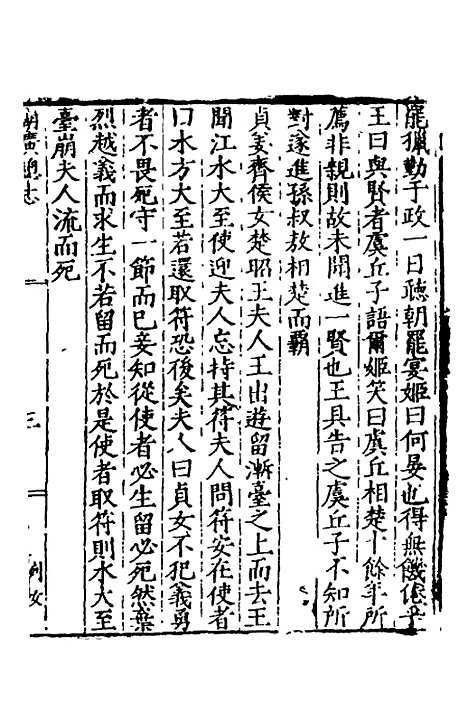 罷獵勤于政一日聽朝罷宴姬曰何晏也得無饑倦乎
王曰與賢者虞丘子語爾姬笑曰虞丘相楚十餘年所
薦非親則故未聞進一賢也王具告之虞丘子不知所
對遂進孫叔敖相楚而霸
貞姜齊侯女楚昭王夫人王出遊留漸臺之上而去王
聞江水大至使迎夫人忘持其符夫人問符安在使者
曰水方大至若還取符恐後矣夫人曰貞女不犯義勇
者不畏死守一節而已妾知從使者必生留必死然棄
符越義而求生不若留而死於是使者取符則水大至
臺崩夫人流而死
湖廣總志
三
列女